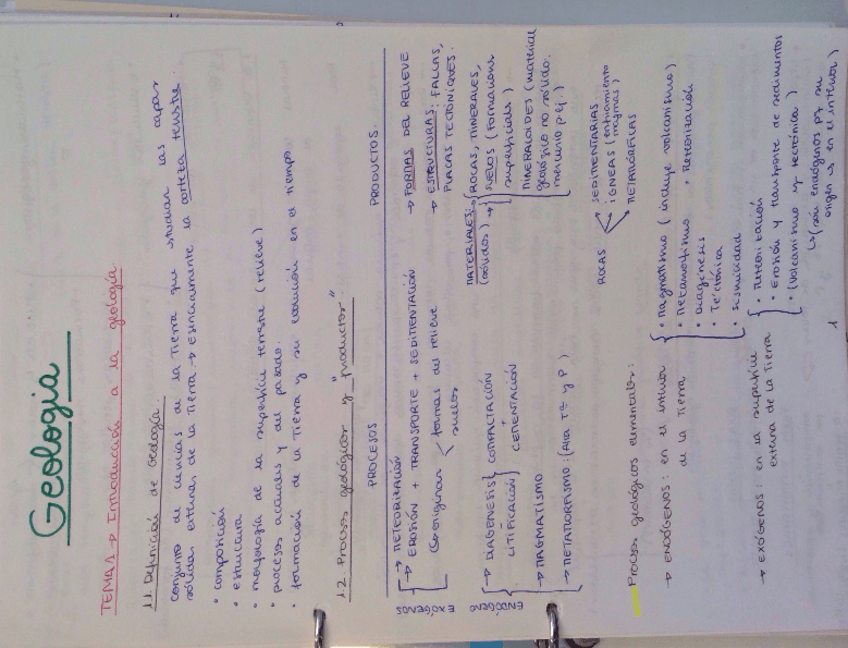 Geología
TEMA 1 → Introducción a la geología.
1.1. Definición de Geología.
conjunto de ciencias de la Tierra que estudian las capas
sólidas externas de la Tierra → esencialmente la corteza terrestre.
• composición
• estructura
• morfología de la superficie terrestre (relieve)
• procesos actuales y del pasado.
• formación de la Tierra y su evolución en el tiempo.
1.2. Procesos geológicos y "productos"
PROCESOS PRODUCTOS.
EXÓGENOS
→ METEORIZACIÓN
→ EROSIÓN + TRANSPORTE + SEDIMENTACIÓN
originan < formas del relieve
suelos
→ FORMAS DEL RELIEVE
→ ESTRUCTURAS: FALLAS,
PLACAS TECTÓNIQUES.
ENDÓGENO
→ DIAGENESIS } COMPACTACIÓN
LITIFICACIÓN + CEMENTACIÓN
→ MAGMATISMO
→ METAMORFISMO: (Alta Tª y P)
MATERIALES: (sólidos) →
ROCAS, MINERALES,
SUELOS (Formacions
superficials)
MINERALOIDES (material
geológico no sólido:
mercurio p.ej.)
ROCAS
SEDIMENTARIAS
ÍGNEAS (enfriamiento
magmas)
METAMÓRFICAS
Procesos geológicos elementales:
→ ENDÓGENOS: en el interior
de la Tierra
• Magmatismo (incluye volcanismo)
• Metamorfismo • Meteorización
• Diagénesis
• Tectónica
• Sismicidad
→ EXÓGENOS: en la superficie
externa de la Tierra
• Meteorización
• Erosión y transporte de sedimentos
• (Volcanismo y tectónica)
↳ (són endógenos pq su
origen es en el interior)
1